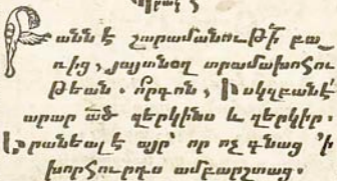 Բանն է շարամանութի՟ բա֊
ռից, յայտնօղ տրամախոհու
թեան. ո՛րգոն, Իսկզբանէ՛
արար ա՟ծ զերկինս և զերկիր.
Երանեալ է այր՝ որ ոչ գնաց ՚ի
խորհուրդս ամբարշտաց.